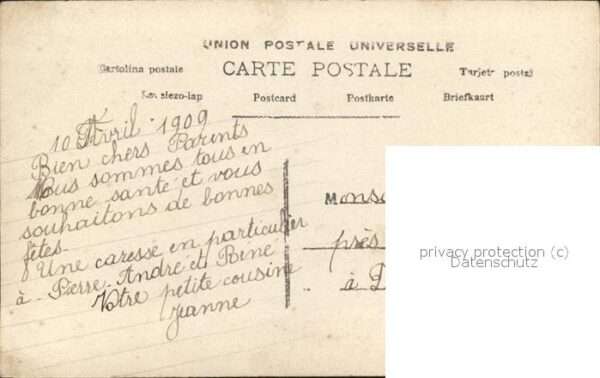 UNION POSTALE UNIVERSELLE
Cartolina postale CARTE POSTALE Tarjeta postal
Postcard Postkarte Briefkaart
10 Avril 1909
Bien chers Parents
Nous sommes tous en
bonne santé et vous
souhaitons de bonnes
fêtes.
Une caresse en particulier
à Pierre-André et René
Votre petite cousine
Jeanne
près
à
privacy protection (c)
Datenschutz